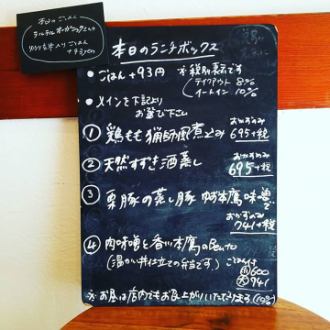 本日のごはん
+93yen
本日のランチボックス
● ごはん +93円 ※税別表示です
テイクアウト 8%
イートイン 10%
● メインを下記より
お選び下さい
① 鶏もも猟師風煮込み おかずのみ
695+税
② 天然すずき酒蒸し おかずのみ
695+税
③ 栗豚の蒸し豚 本鷹味噌
おかずのみ
741+税
④ 肉味噌と香川本鷹の
(温かい丼仕立ての弁当です) ごはん付
小 600
大 741
※お昼は店内でもお召上がりいただけます(10%)